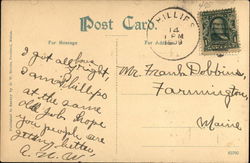 Post Card.
For Message
For Address
PHILLIPS
14
1 PM
I got all your
right,
I am in Phillips
at the same
old job. Hope
you people are
getting better
Mr. Frank Dobbins,
Farmington,
Maine